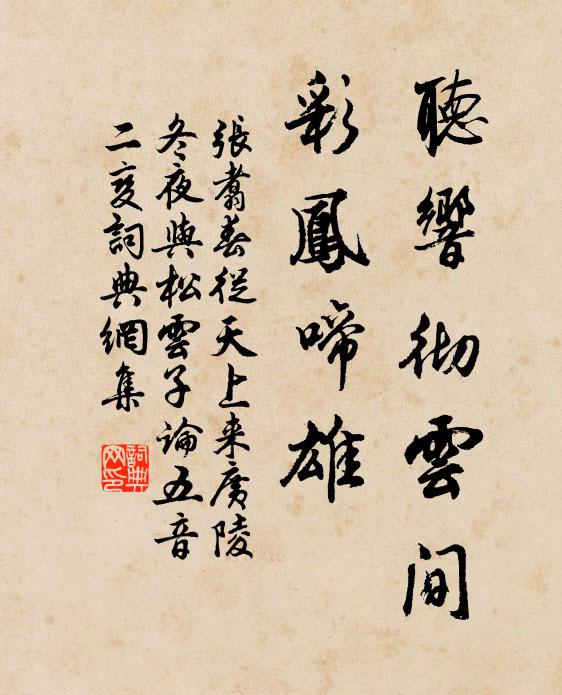 聽響彻雲间
彩鳳啼雄
張翥春從天上来廣陵
冬夜與松雲子論五音
二变詞典網集
詞典
网印